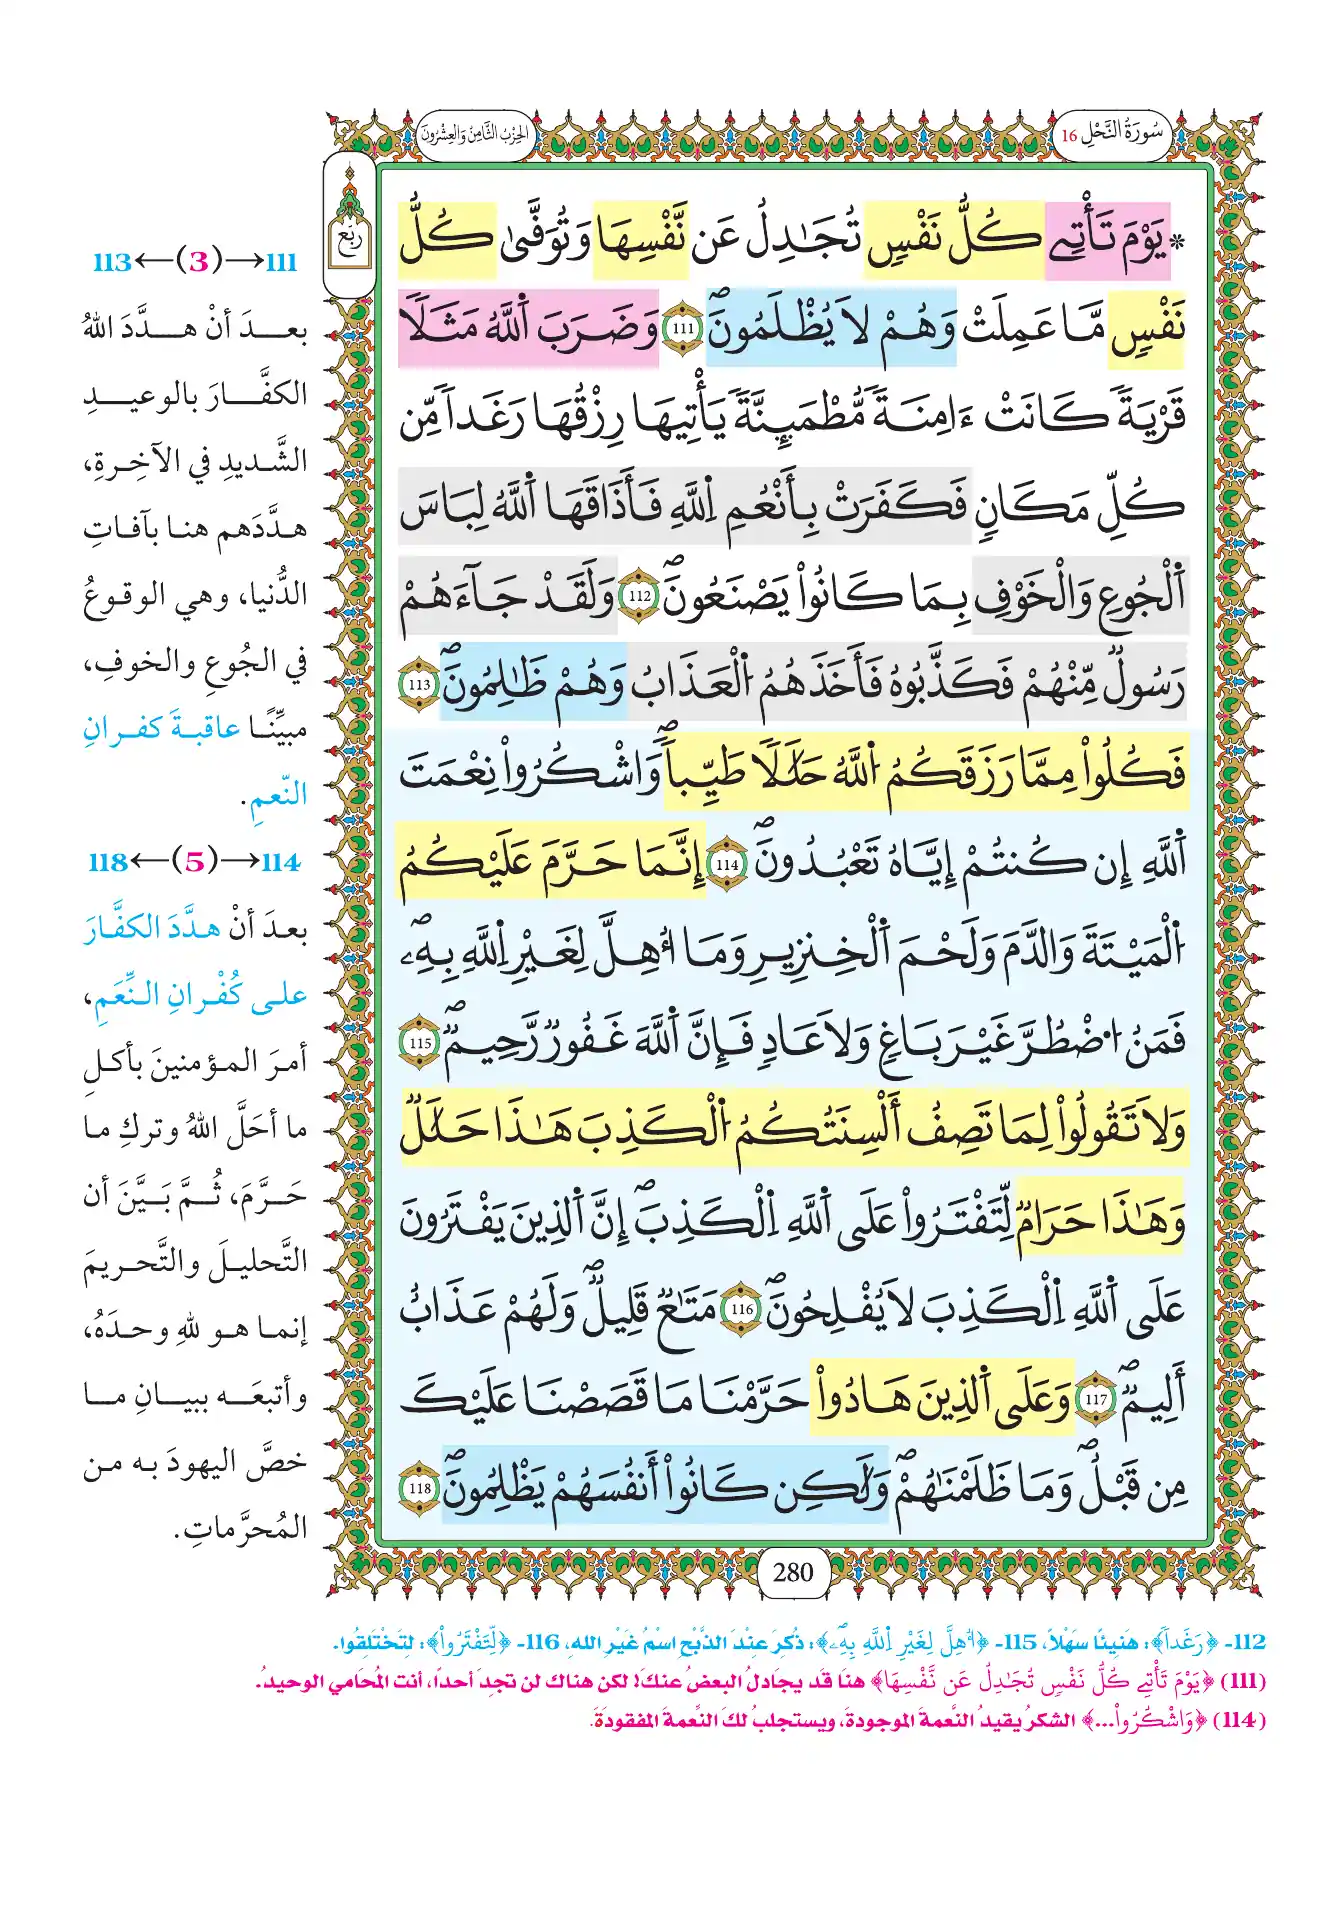 سُورَةُ النَّحْلِ 16
الحِزْبُ الثَّامِنُ وَالْعِشْرُونَ
رُبُع
* يَوْمَ تَأْتِے كُلُّ نَفْسٖ تُجَٰدِلُ عَن نَّفْسِهَا وَتُوَفّ۪يٰ كُلُّ
نَفْسٖ مَّا عَمِلَتْ وَهُمْ لَا يُظْلَمُونَۖ 111 وَضَرَبَ اَ۬للَّهُ مَثَلاٗ
قَرْيَةٗ كَانَتْ ءَامِنَةٗ مُّطْمَئِنَّةٗ يَأْتِيهَا رِزْقُهَا رَغَداٗ مِّن
كُلِّ مَكَانٖ فَكَفَرَتْ بِأَنْعُمِ اِ۬للَّهِ فَأَذَٰقَهَا اَ۬للَّهُ لِبَاسَ
اَ۬لْجُوعِ وَالْخَوْفِ بِمَا كَانُواْ يَصْنَعُونَۖ 112 وَلَقَدْ جَآءَهُمْ
رَسُولٞ مِّنْهُمْ فَكَذَّبُوهُ فَأَخَذَهُمُ اُ۬لْعَذَابُ وَهُمْ ظَٰلِمُونَۖ 113
فَكُلُواْ مِمَّا رَزَقَكُمُ اُ۬للَّهُ حَلَٰلاٗ طَيِّباٗۖ وَاشْكُرُواْ نِعْمَتَ
اَ۬للَّهِ إِن كُنتُمْ إِيَّاهُ تَعْبُدُونَۖ 114 إِنَّمَا حَرَّمَ عَلَيْكُمُ
اُ۬لْمَيْتَةَ وَالدَّمَ وَلَحْمَ اَ۬لْخِنزِيرِ وَمَا أُهِلَّ لِغَيْرِ اِ۬للَّهِ بِهِۦۖ
فَمَنُ اُ۟ضْطُرَّ غَيْرَ بَاغٖ وَلَا عَادٖ فَإِنَّ اَ۬للَّهَ غَفُورٞ رَّحِيمٞۖ 115
وَلَا تَقُولُواْ لِمَا تَصِفُ أَلْسِنَتُكُمُ اُ۬لْكَذِبَ هَٰذَا حَلَٰلٞ
وَهَٰذَا حَرَامٞ لِّتَفْتَرُواْ عَلَى اَ۬للَّهِ اِ۬لْكَذِبَۖ إِنَّ اَ۬لذِينَ يَفْتَرُونَ
عَلَى اَ۬للَّهِ اِ۬لْكَذِبَ لَا يُفْلِحُونَۖ 116 مَتَٰعٞ قَلِيلٞۖ وَلَهُمْ عَذَابٌ
أَلِيمٞۖ 117 وَعَلَى اَ۬لذِينَ هَادُواْ حَرَّمْنَا مَا قَصَصْنَا عَلَيْكَ
مِن قَبْلُۖ وَمَا ظَلَمْنَٰهُمْۖ وَلَٰكِن كَانُواْ أَنفُسَهُمْ يَظْلِمُونَۖ 118
280
111←(3)→113
بعدَ أنْ هدَّدَ اللهُ
الكفَّارَ بالوعيدِ
الشَّديدِ في الآخِرةِ،
هدَّدَهم هنا بآفاتِ
الدُّنيا، وهي الوقوعُ
في الجُوعِ والخوفِ،
مبيِّنًا عاقبةَ كفرانِ
النّعمِ.
114←(5)→118
بعدَ أنْ هدَّدَ الكفَّارَ
على كُفْرانِ النِّعَمِ،
أمرَ المؤمنينَ بأكلِ
ما أحَلَّ اللهُ وتركِ ما
حَرَّمَ، ثُمَّ بَيَّنَ أن
التَّحليلَ والتَّحريمَ
إنما هو للهِ وحدَهُ،
وأتبعَه ببيانِ ما
خصَّ اليهودَ به من
المُحرَّماتِ.
112- ﴿رَغَداٗ﴾: هَنِيئًا سَهْلاً، 115- ﴿أُهِلَّ لِغَيْرِ اِ۬للَّهِ بِهِۦ﴾: ذُكِرَ عِنْدَ الذَّبْحِ اسْمُ غَيْرِ اللهِ، 116- ﴿لِّتَفْتَرُواْ﴾: لِتَخْتَلِقُوا.
(111) ﴿يَوْمَ تَأْتِے كُلُّ نَفْسٖ تُجَٰدِلُ عَن نَّفْسِهَا﴾ هنَا قَد يجادلُ البعضُ عنكَ! لكن هناكَ لن تجِدَ أحداً، أنت المُحَامي الوحيدُ.
(114) ﴿وَاشْكُرُواْ...﴾ الشكرُ يقيدُ النَّعمةَ الموجودةَ، ويستجلبُ لكَ النِّعمةَ المفقودَةَ.